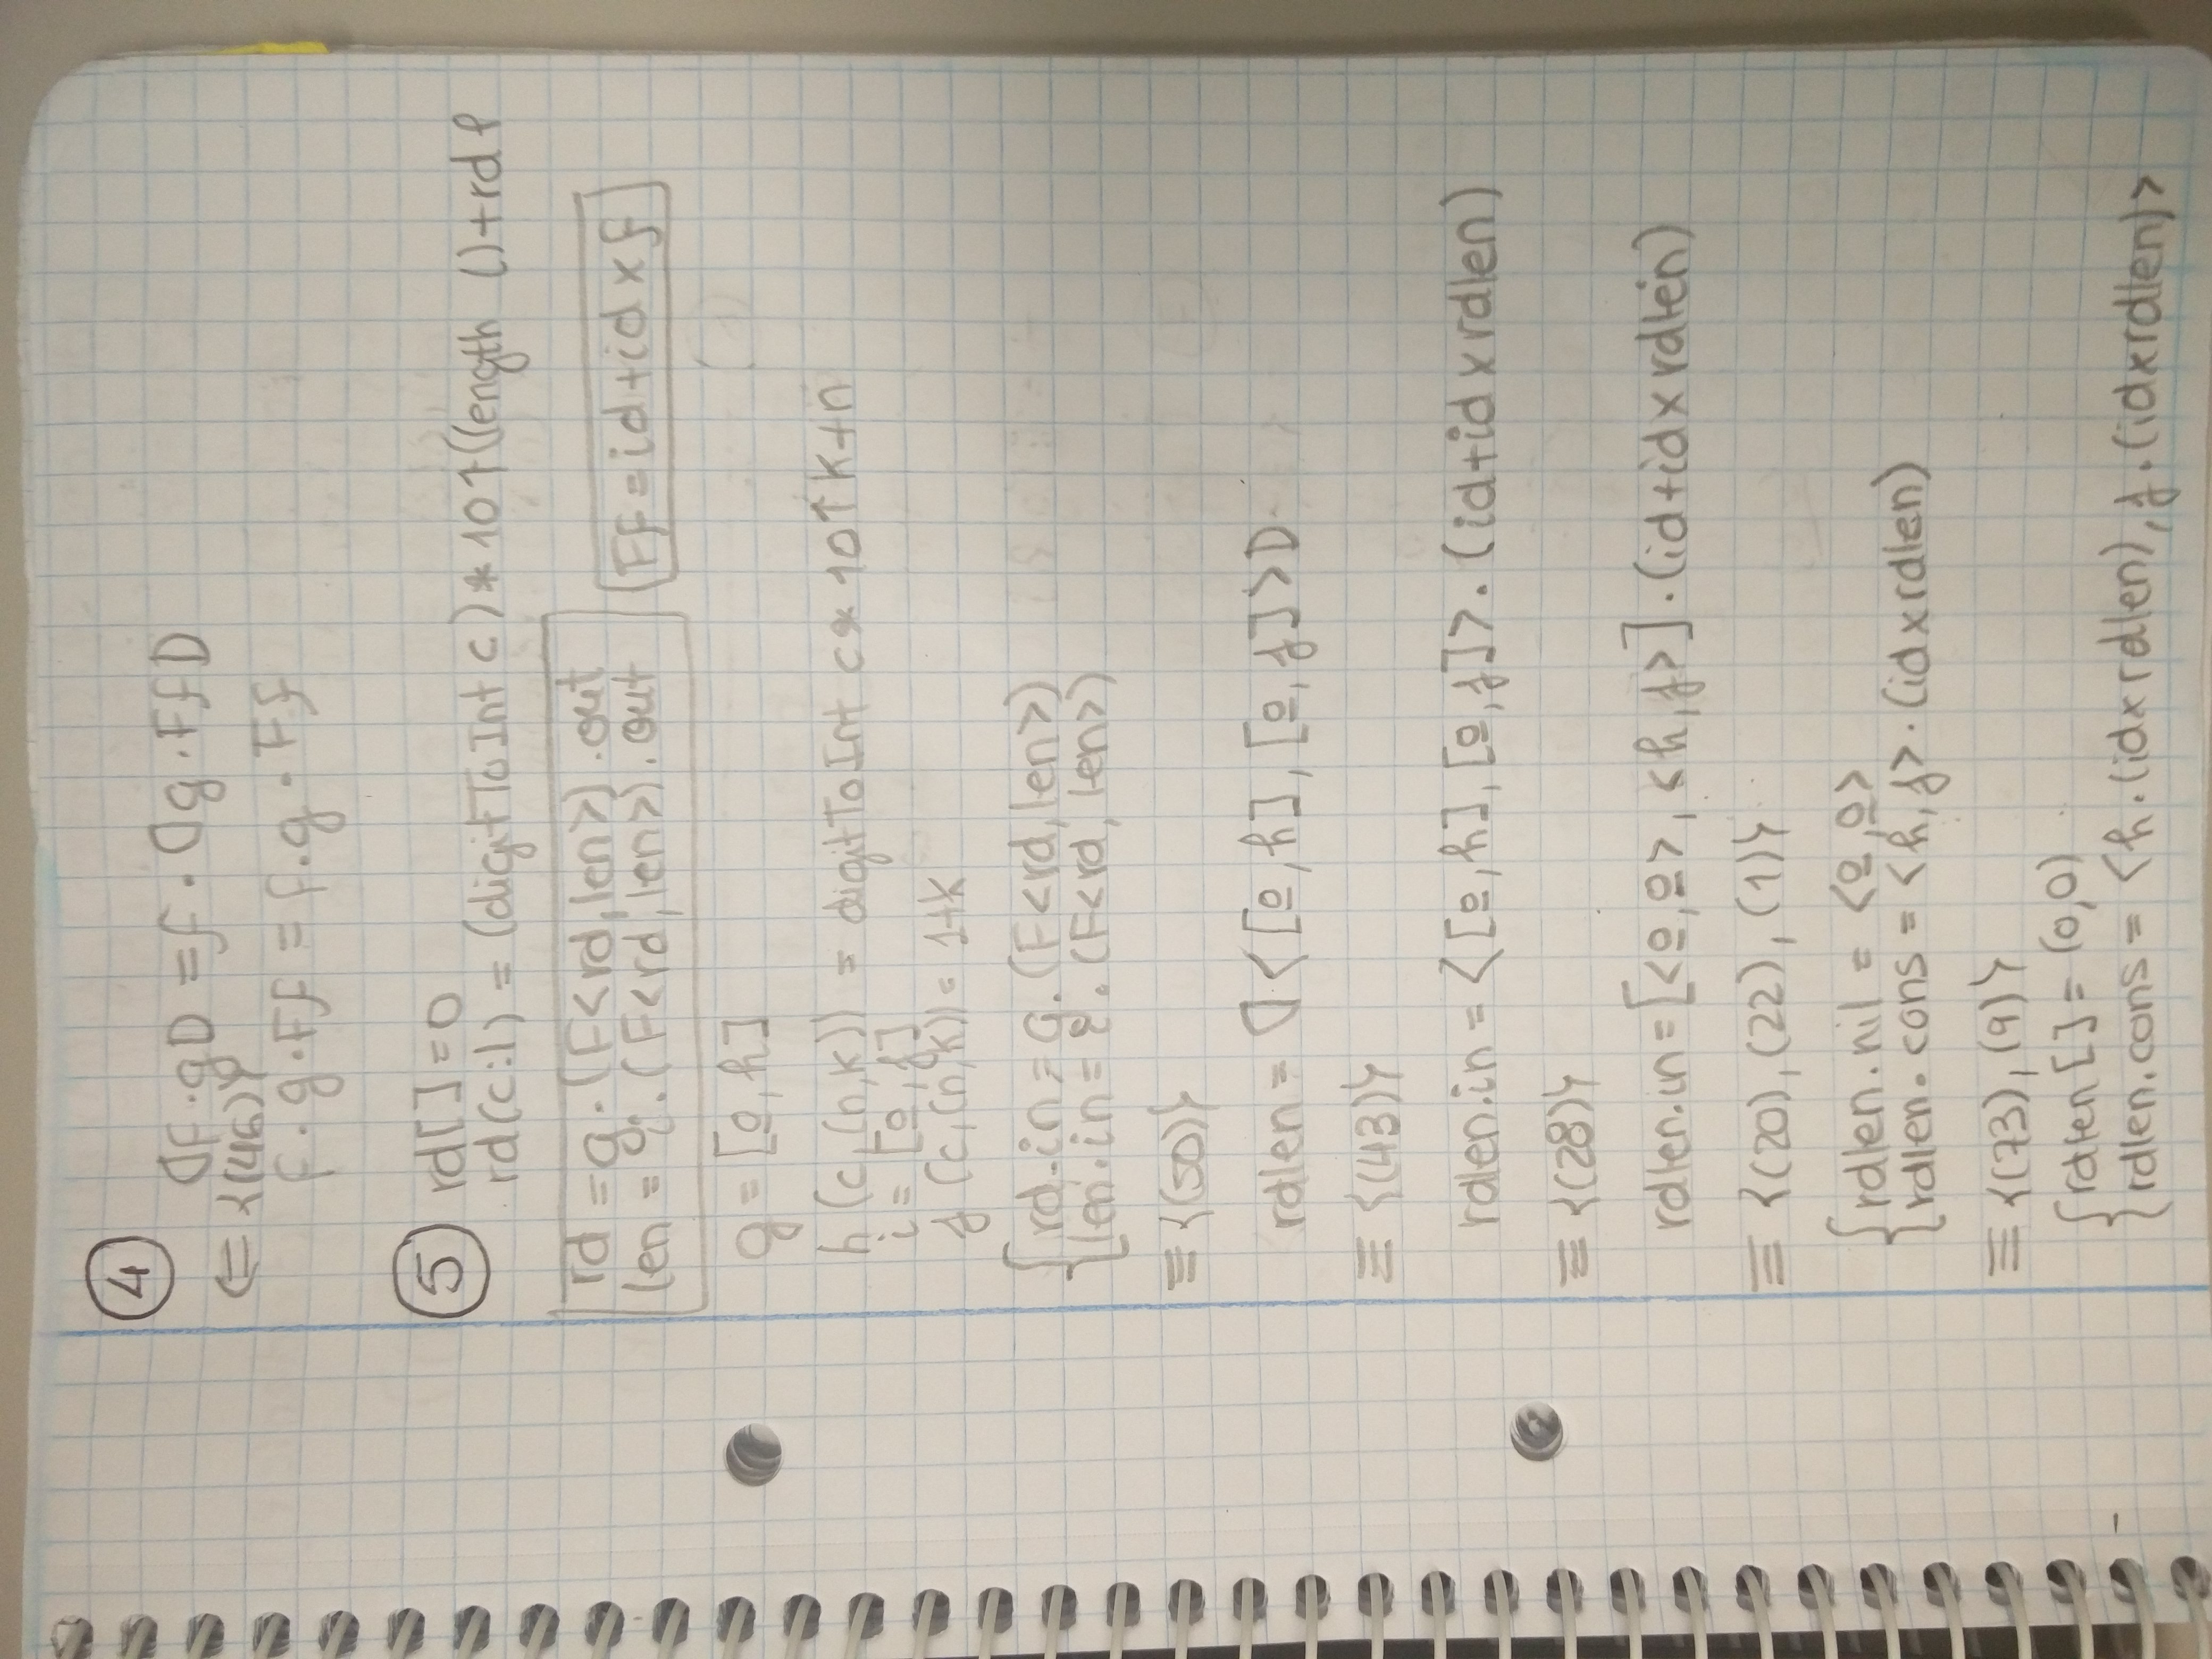 4
⦇f·g⦈ = f·⦇g·Ff⦈
⇐ {(46)}
f·g·Ff = f·g·Ff
5 rd[] = 0
rd(c:l) = (digitToInt c) * 10↑(length l)+rd l
rd = g·(F<rd,len>).out
len = i.(F<rd,len>).out
Ff = id+id x f
g = [0̲, h]
h (c,(n,k)) = digitToInt c * 10↑k+n
i = [0̲, j]
j (c,(n,k)) = 1+k
{rd.in = g.(F<rd,len>)
{len.in = i.(F<rd, len>)
≡ {(50)}
rdlen = ⦇<[0̲, h], [0̲, j]>⦈
≡ {(43)}
rdlen.in = <[0̲, h], [0̲, j]>.(id+id x rdlen)
≡ {(28)}
rdlen.in = [<0̲,0̲>, <h,j>].(id+id x rdlen)
≡ {(20), (22), (1)}
{rdlen.nil = <0̲,0̲>
{rdlen.cons = <h,j>.(id x rdlen)
≡ {(73), (9)}
{rdlen[] = (0,0)
{rdlen.cons = <h.(id x rdlen), j.(id x rdlen)>